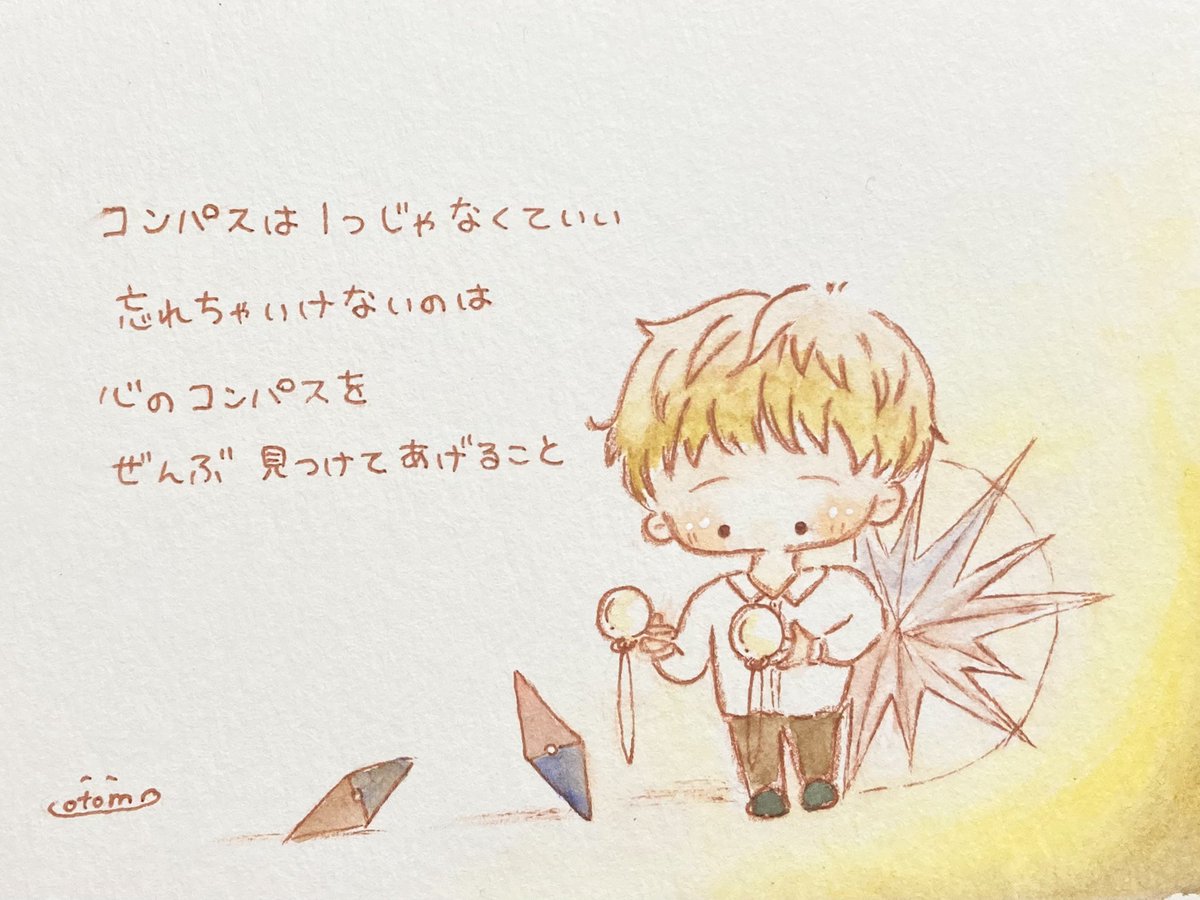 コンパスは1つじゃなくていい
忘れちゃいけないのは
心のコンパスを
ぜんぶ 見つけてあげること
otom